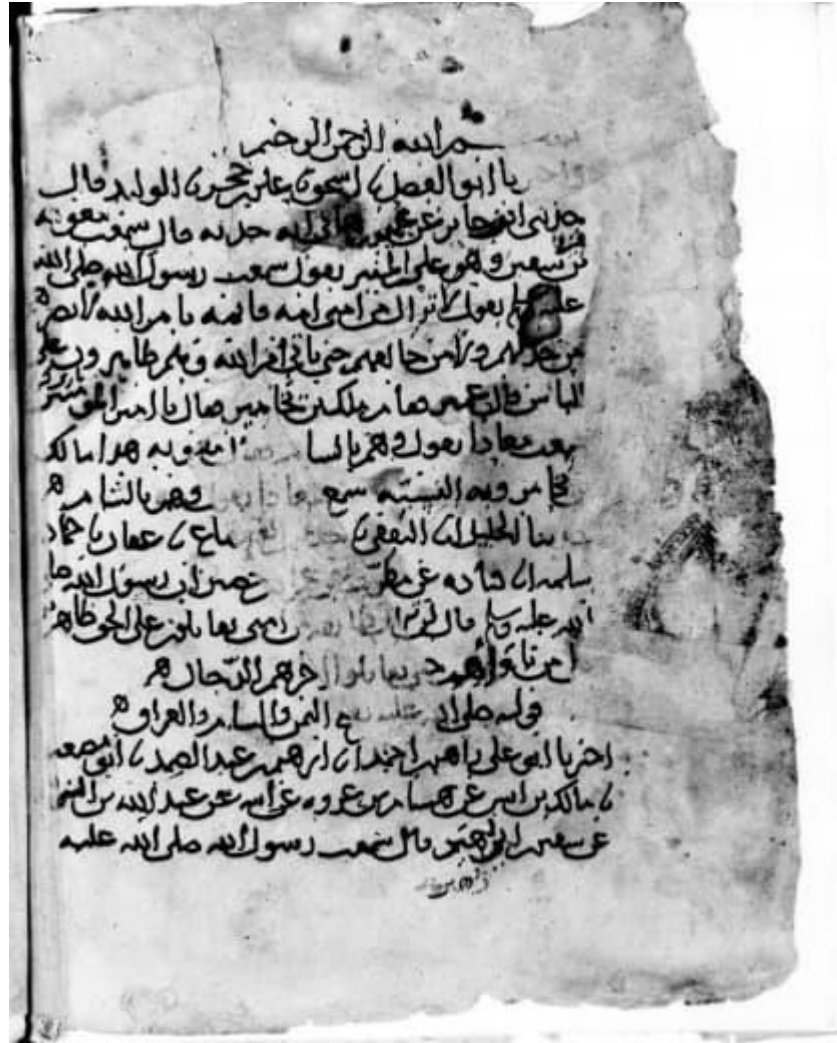 بسم الله الرحمن الرحيم
نا ابو الفضل نا اسحق نا علي بن حجر نا الوليد قال
حدثني ابن جابر عن عمير بن هانى انه حدثه قال سمعت معوية
بن ابي سفين وهو على المنبر يقول سمعت رسول الله صلى الله
عليه وسلم يقول لا تزال من امتي امة قائمة بامر الله لا يضرهم
من خذلهم ولا من خالفهم حتى ياتي امر الله وهم ظاهرون على
الناس قال عمير فقام ملك بن يخامر فقال يا امير المومنين
سمعت معاذا يقول وهم بالشام فقال معوية هذا مالك
بن يخامر وبه النسبة سمع معاذا يقول وهم بالشام
الخليل انا الثقفي نا عفان نا حماد
سلمة انا قتادة عن مطرف عن عمران بن حصين ان رسول الله صلى
الله عليه وسلم قال لا تزال طائفة من امتي يقاتلون على الحق ظاهرين
على من ناواهم حتى يقاتل اخرهم الدجال
قوله صلى الله عليه تفتح اليمن والشام والعراق
اخبرنا ابو علي زاهر بن احمد انا ابرهيم بن عبد الصمد نا ابو مصعب
نا مالك بن انس عن هشام بن عروة عن ابيه عن عبد الله بن الزبير
عن سفين بن ابي زهير قال سمعت رسول الله صلى الله عليه